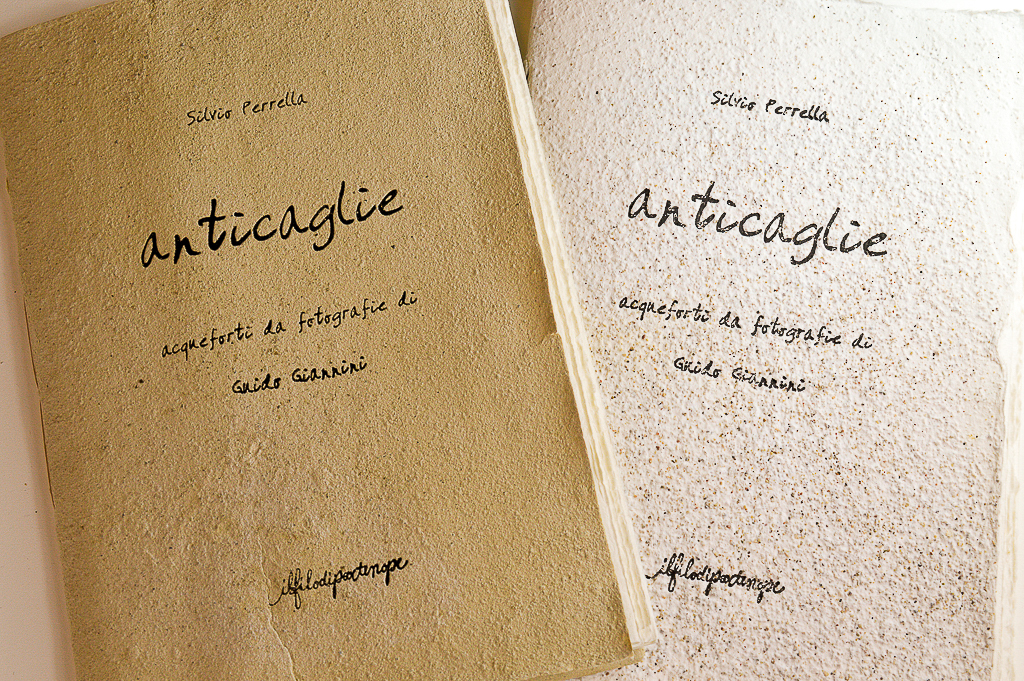 Silvio Perrella
anticaglie
acqueforti da fotografie di
Guido Giannini
ilfilodipartenope
Silvio Perrella
anticaglie
acqueforti da fotografie di
Guido Giannini
ilfilodipartenope